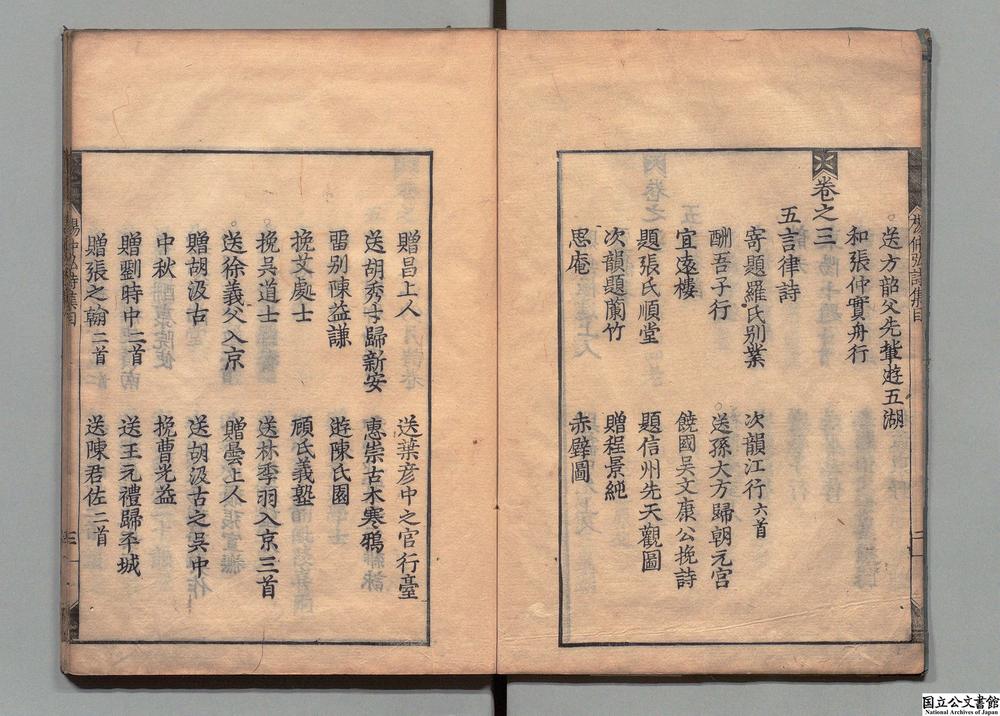 送方韶父先輩遊五湖
和張仲實舟行
卷之三
五言律詩
寄題羅氏别業　次韻江行六首
酬吾子行　送孫大方歸朝元宮
宜遠樓　饒國吳文康公挽詩
題張氏順堂　題信州先天觀圖
次韻題蘭竹　贈程景純
思庵　赤壁圖
贈昌上人　送葉彦中之官行臺
送胡秀才歸新安　惠崇古木寒鴉
畱别陳益謙　遊陳氏園
挽艾處士　顧氏義塾
挽吳道士　送林季羽入京三首
送徐義父入京　贈曇上人
贈胡汲古　送胡汲古之吳中
中秋　挽曹光益
贈劉時中二首　送王元禮歸平城
贈張之翰二首　送陳君佐二首
楊仲弘詩集目
三
国立公文書館
National Archives of Japan